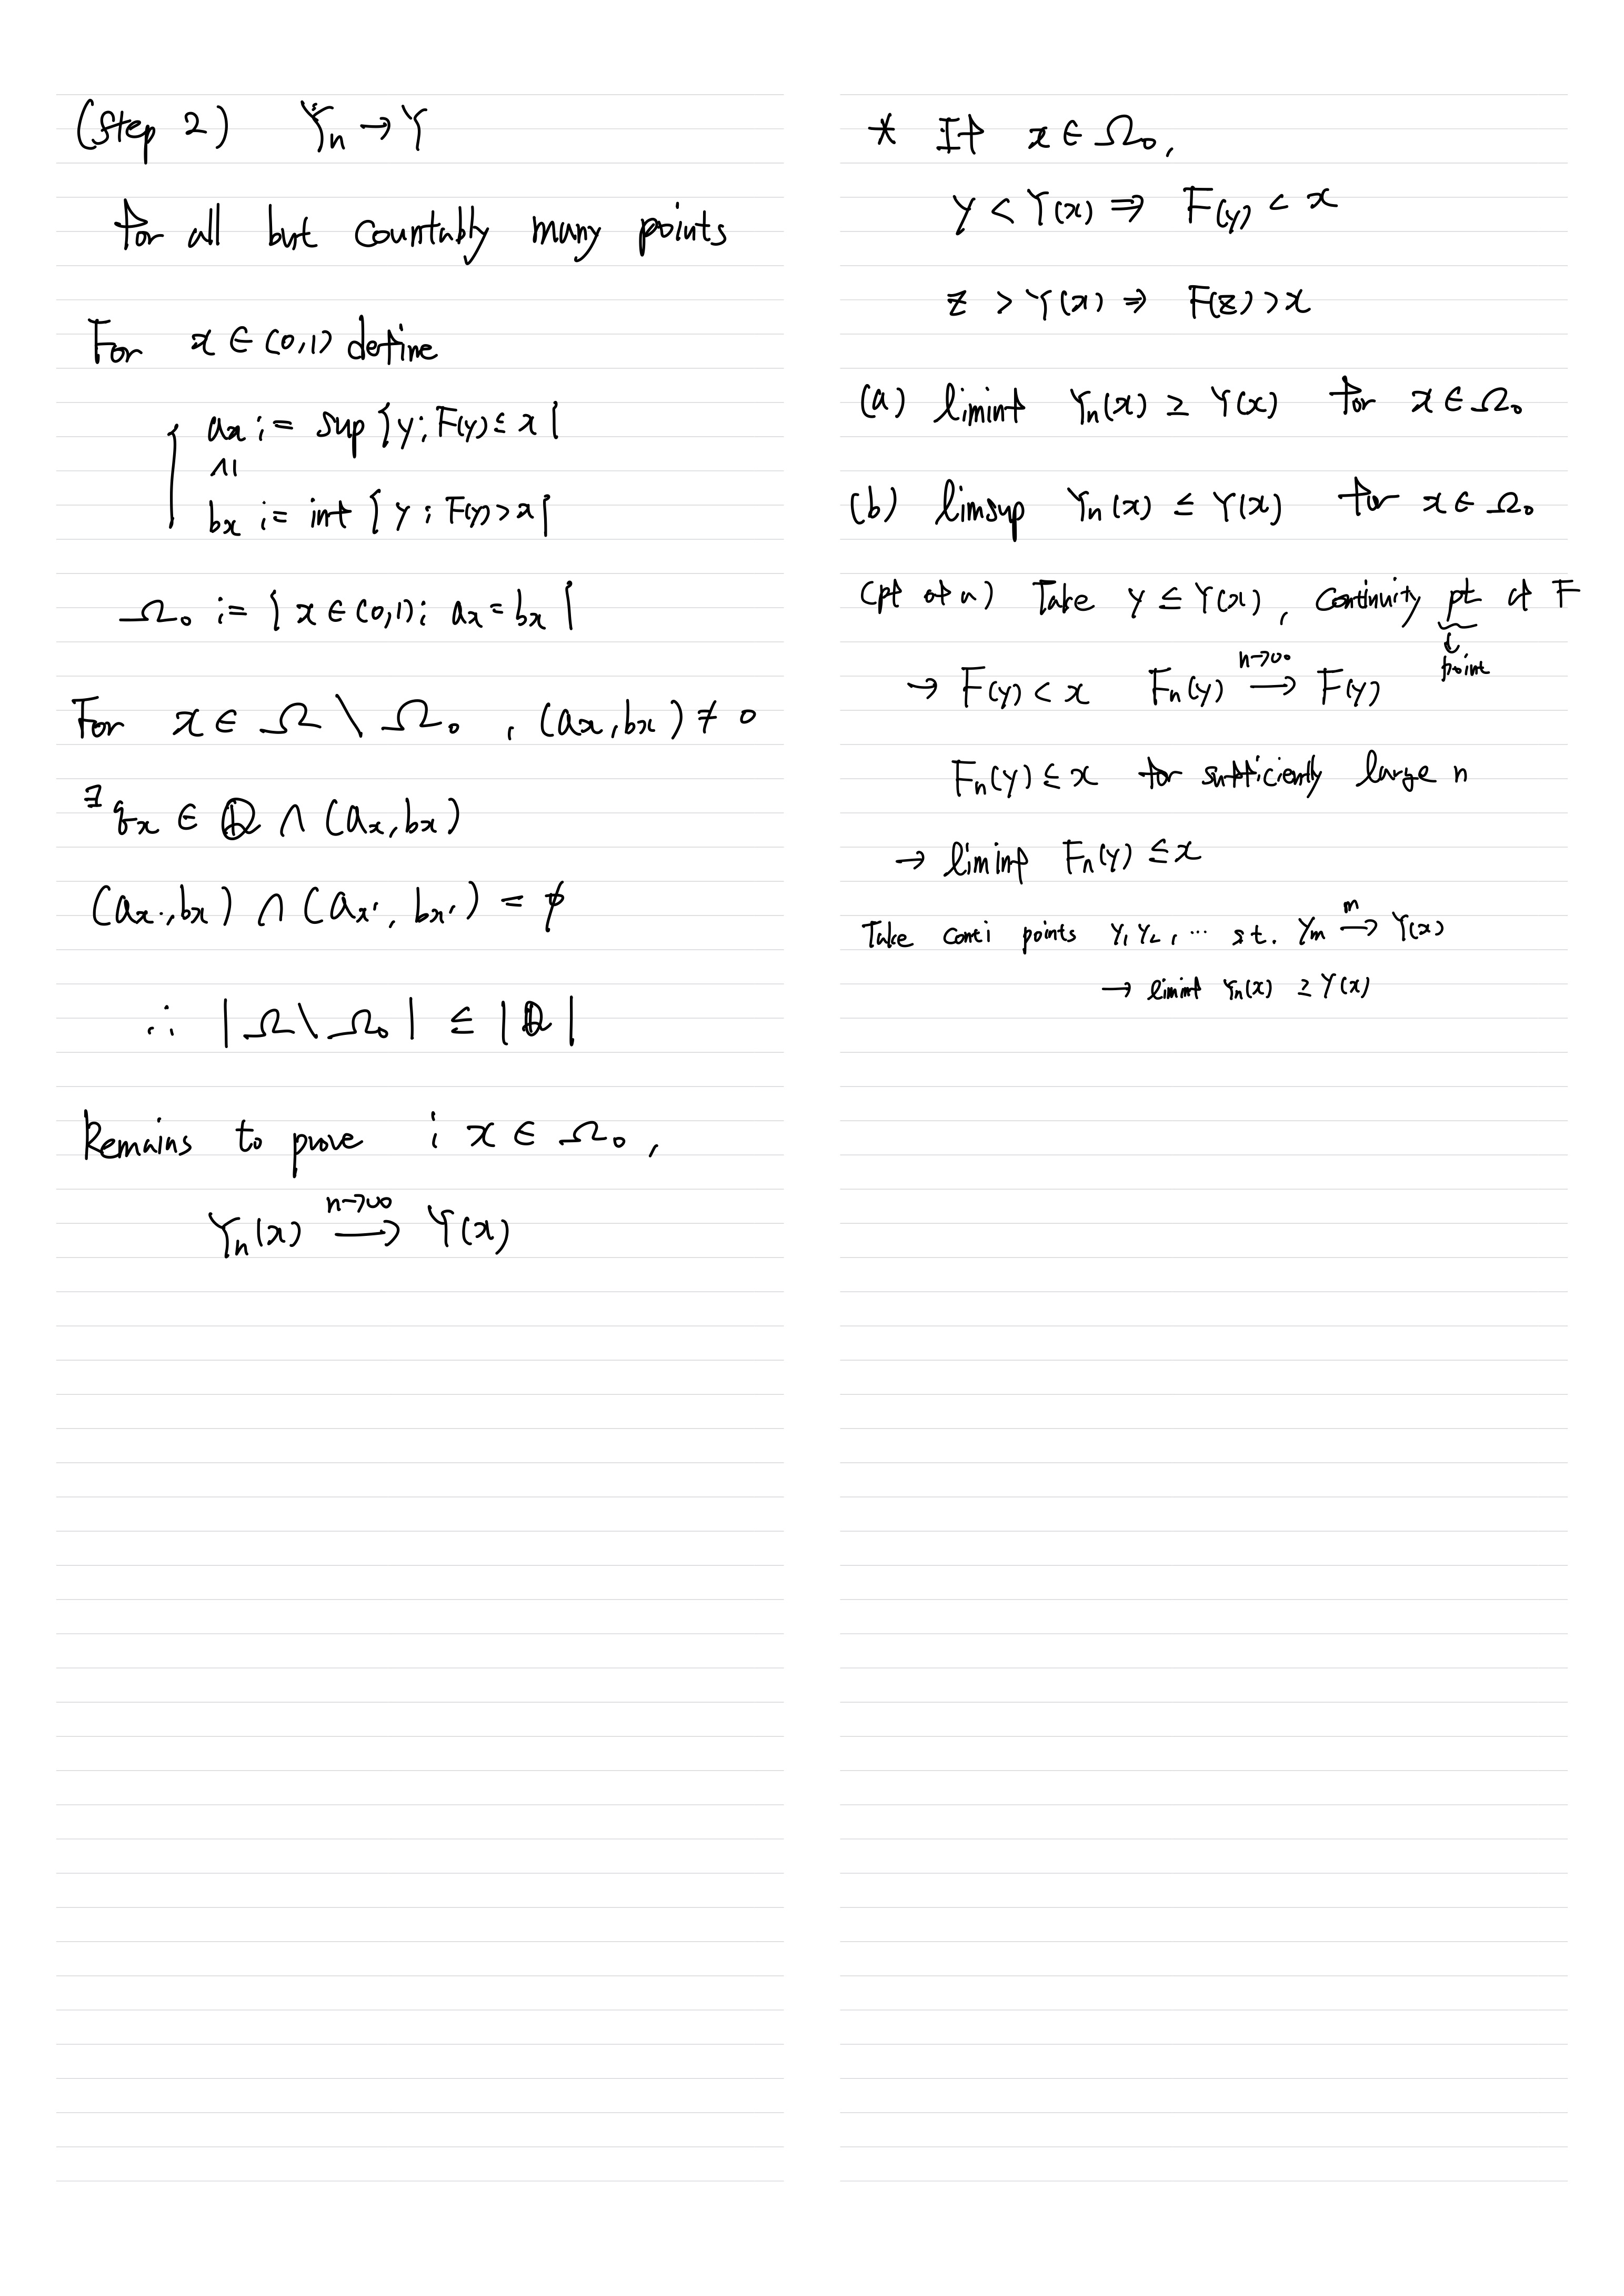 (Step 2) Yₙ → Y
for all but countably many points
For x ∈ (0,1) define
aₓ := sup {y ; F(y) ≤ x}
∧ıı
bₓ := inf {y ; F(y) > x}
Ω₀ := {x ∈ (0,1) ; aₓ = bₓ}
For x ∈ Ω \ Ω₀ , (aₓ, bₓ) ≠ 0
∃ qₓ ∈ ℚ ∩ (aₓ, bₓ)
(aₓ, bₓ) ∩ (aₓ', bₓ') = ∅
∴ |Ω \ Ω₀| ≤ |ℚ|
Remains to prove ; x ∈ Ω₀ ,
Yₙ(x) → Y(x) n→∞
* If x ∈ Ω₀,
y < Y(x) ⇒ F(y) < x
z > Y(x) ⇒ F(z) > x
(a) liminf Yₙ(x) ≥ Y(x) for x ∈ Ω₀
(b) limsup Yₙ(x) ≤ Y(x) for x ∈ Ω₀
(pf of a) Take y ≤ Y(x) , continuity pt of F
point
→ F(y) < x Fₙ(y) → F(y) n→∞
Fₙ(y) ≤ x for sufficiently large n
→ liminf Fₙ(y) ≤ x
Take conti points y₁ y₂ , ⋯ s.t. yₘ → Y(x) m
→ liminf Yₙ(x) ≥ Y(x)